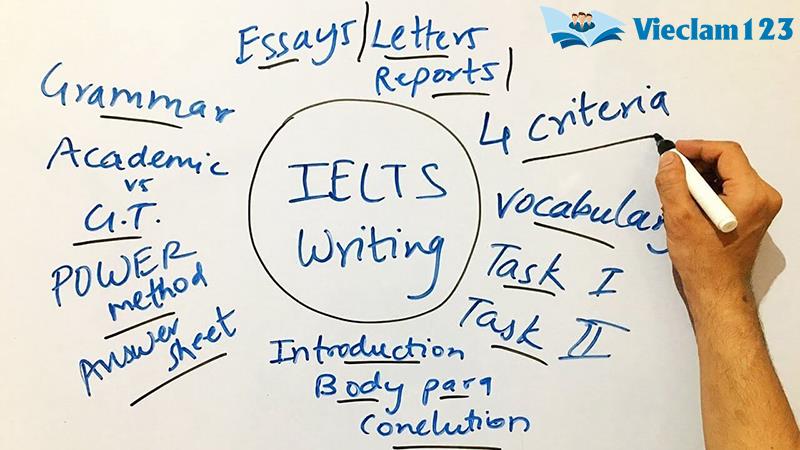 Vieclam123
Essays/Letters
Reports/
Grammar
Academic
vs
G.T.
POWER
method
Answer
sheet
IELTS
Writing
4 criteria
vocabulary
Task I
Task II
Introduction
Body para
Conclution